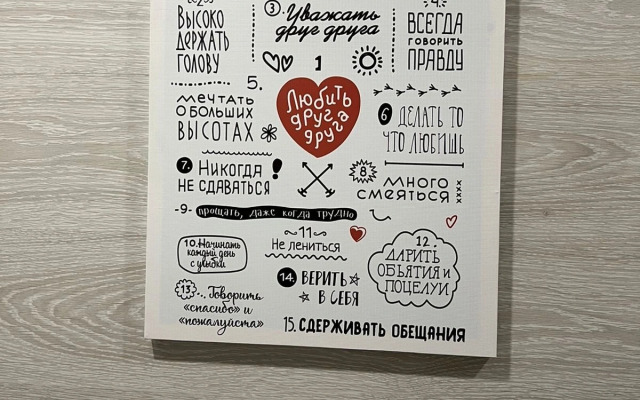 3. Уважать
друг друга
Высоко
держать
голову
4.
Всегда
говорить
правду
1
Любить
друг
друга
5.
мечтать
о больших
высотах
6 Делать то
что любишь
7. Никогда
не сдаваться!
8.
много
смеяться
-9- прощать, даже когда трудно
10. Начинать
каждый день
с улыбки
~11~
Не лениться
12.
Дарить
объятия и
поцелуи
13... Говорить
«спасибо» и
«пожалуйста»
14. Верить
в себя
15. Сдерживать обещания